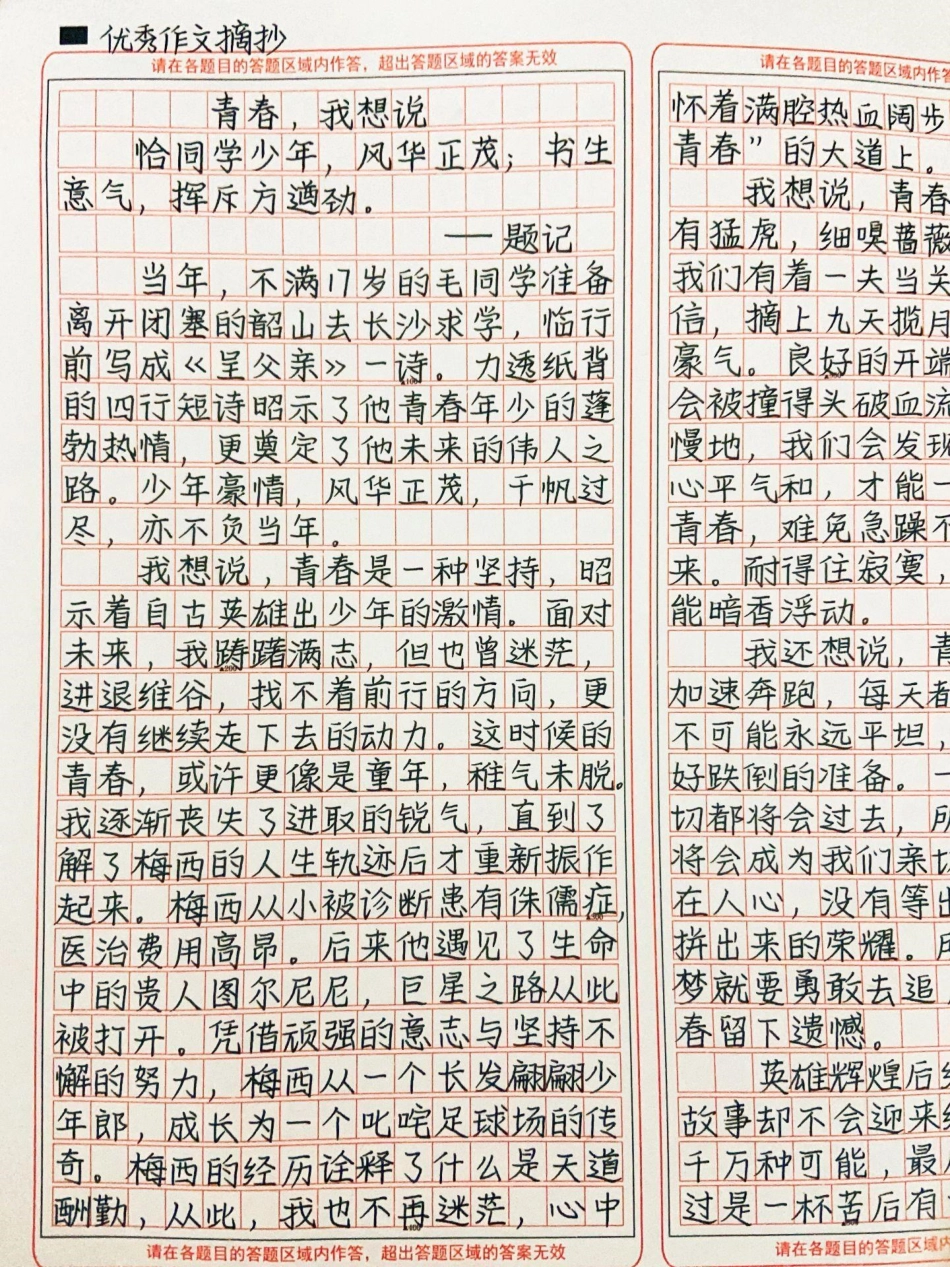 优秀作文摘抄
请在各题目的答题区域内作答，超出答题区域的答案无效
青春，我想说
恰同学少年，风华正茂；书生
意气，挥斥方遒劲。
——题记
当年，不满17岁的毛同学准备
离开闭塞的韶山去长沙求学，临行
前写成《呈父亲》一诗。力透纸背
的四行短诗昭示了他青春年少的蓬
勃热情，更奠定了他未来的伟人之
路。少年豪情，风华正茂，千帆过
尽，亦不负当年。
我想说，青春是一种坚持，昭
示着自古英雄出少年的激情。面对
未来，我踌躇满志，但也曾迷茫，
进退维谷，找不着前行的方向，更
没有继续走下去的动力。这时候的
青春，或许更像是童年，稚气未脱。
我逐渐丧失了进取的锐气，直到了
解了梅西的人生轨迹后才重新振作
起来。梅西从小被诊断患有侏儒症，
医治费用高昂。后来他遇见了生命
中的贵人图尔尼尼，巨星之路从此
被打开。凭借顽强的意志与坚持不
懈的努力，梅西从一个长发翩翩少
年郎，成长为一个叱咤足球场的传
奇。梅西的经历诠释了什么是天道
酬勤，从此，我也不再迷茫，心中
请在各题目的答题区域内作答，超出答题区域的答案无效
请在各题目的答题区域内作答
怀着满腔热血阔步
青春”的大道上。
我想说，青春
有猛虎，细嗅蔷薇
我们有着一夫当关
信，摘上九天揽月
豪气。良好的开端
会被撞得头破血流
慢地，我们会发现
心平气和，才能一
青春，难免急躁不
来。耐得住寂寞，
能暗香浮动。
我还想说，青
加速奔跑，每天都
不可能永远平坦，
好跌倒的准备。一
切都将会过去，所
将会成为我们亲切
在人心，没有等出
拼出来的荣耀。
梦就要勇敢去追
春留下遗憾。
英雄辉煌后
故事却不会迎来
千万种可能，最
过是一杯苦后有
请在各题目的答题区域内